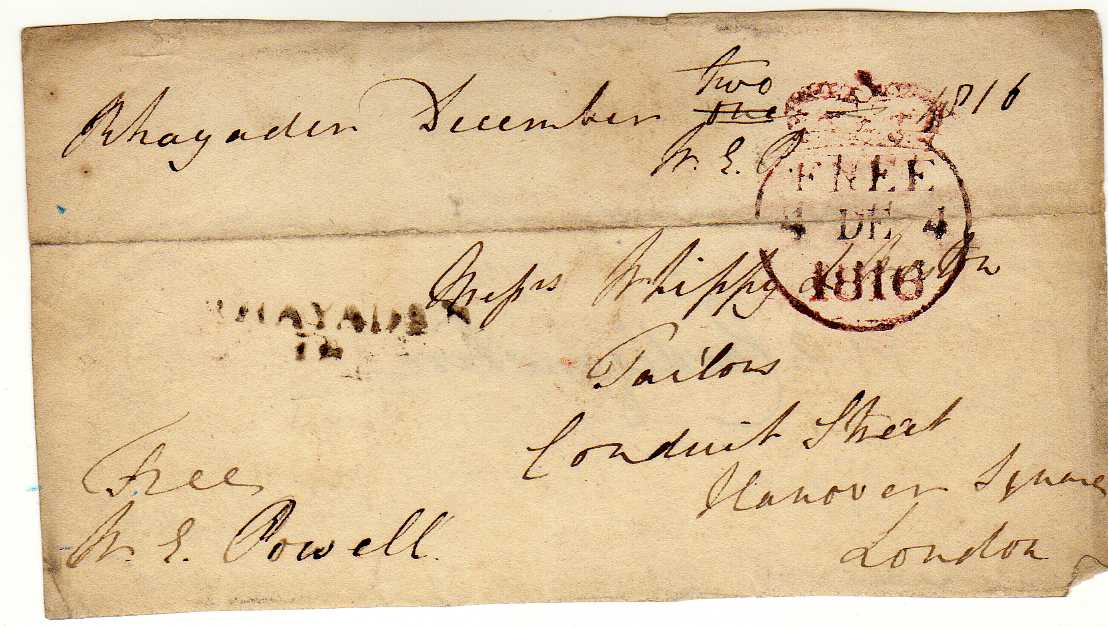 two
Rhayader December ~~one~~ 1816
W. E. P
FREE
4 DE 4
1816
Messrs Whippy &
RHAYADER
Tailors
Conduit Street
Free
Hanover Square
W. E. Powell
London